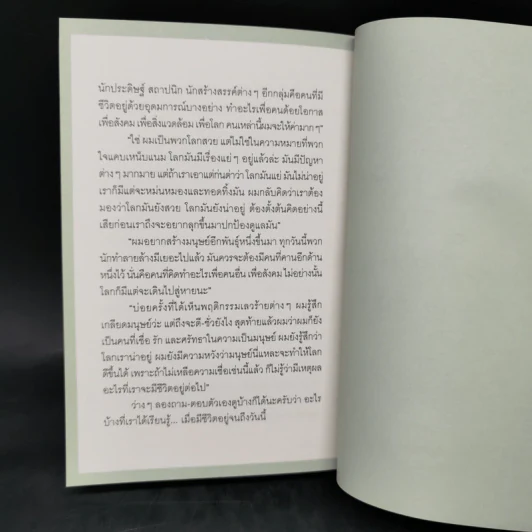 นักประดิษฐ์ สถาปนิก นักสร้างสรรค์ต่าง ๆ อีกกลุ่มคือคนที่มี
ชีวิตอยู่ด้วยอุดมการณ์บางอย่าง ทำอะไรเพื่อคนด้อยโอกาส
เพื่อสังคม เพื่อสิ่งแวดล้อม เพื่อโลก คนเหล่านี้ผมจะให้ค่ามาก ๆ"
"ใช่ ผมเป็นพวกโลกสวย แต่ไม่ใช่ในความหมายที่พวก
ใจแคบเหน็บแนม โลกมันมีเรื่องแย่ ๆ อยู่แล้วล่ะ มันมีปัญหา
ต่าง ๆ มากมาย แต่ถ้าเราเอาแต่ก่นด่าว่า โลกมันแย่ มันไม่น่าอยู่
เราก็มีแต่จะหม่นหมองและทอดทิ้งมัน ผมกลับคิดว่าเราต้อง
มองว่าโลกมันยังสวย โลกมันยังน่าอยู่ ต้องตั้งต้นคิดอย่างนี้
เสียก่อนเราถึงจะอยากลุกขึ้นมาปกป้องดูแลมัน"
"ผมอยากสร้างมนุษย์อีกพันธุ์หนึ่งขึ้นมา ทุกวันนี้พวก
นักทำลายล้างมีเยอะไปแล้ว มันควรจะต้องมีคนที่คานอีกด้าน
หนึ่งไว้ นั่นคือคนที่คิดทำอะไรเพื่อคนอื่น เพื่อสังคม ไม่อย่างนั้น
โลกก็มีแต่จะเดินไปสู่หายนะ"
"บ่อยครั้งที่ได้เห็นพฤติกรรมเลวร้ายต่าง ๆ ผมรู้สึก
เกลียดมนุษย์ว่ะ แต่ถึงจะดี-ชั่วยังไง สุดท้ายแล้วผมว่าผมก็ยัง
เป็นคนที่เชื่อ รัก และศรัทธาในความเป็นมนุษย์ ผมยังรู้สึกว่า
โลกเราน่าอยู่ ผมยังมีความหวังว่ามนุษย์นี่แหละจะทำให้โลก
ดีขึ้นได้ เพราะถ้าไม่เหลือความเชื่อเช่นนี้แล้ว ก็ไม่รู้ว่ามีเหตุผล
อะไรที่เราจะมีชีวิตอยู่ต่อไป"
ว่าง ๆ ลองถาม-ตอบตัวเองดูบ้างก็ได้นะครับว่า อะไร
บ้างที่เราได้เรียนรู้... เมื่อมีชีวิตอยู่จนถึงวันนี้